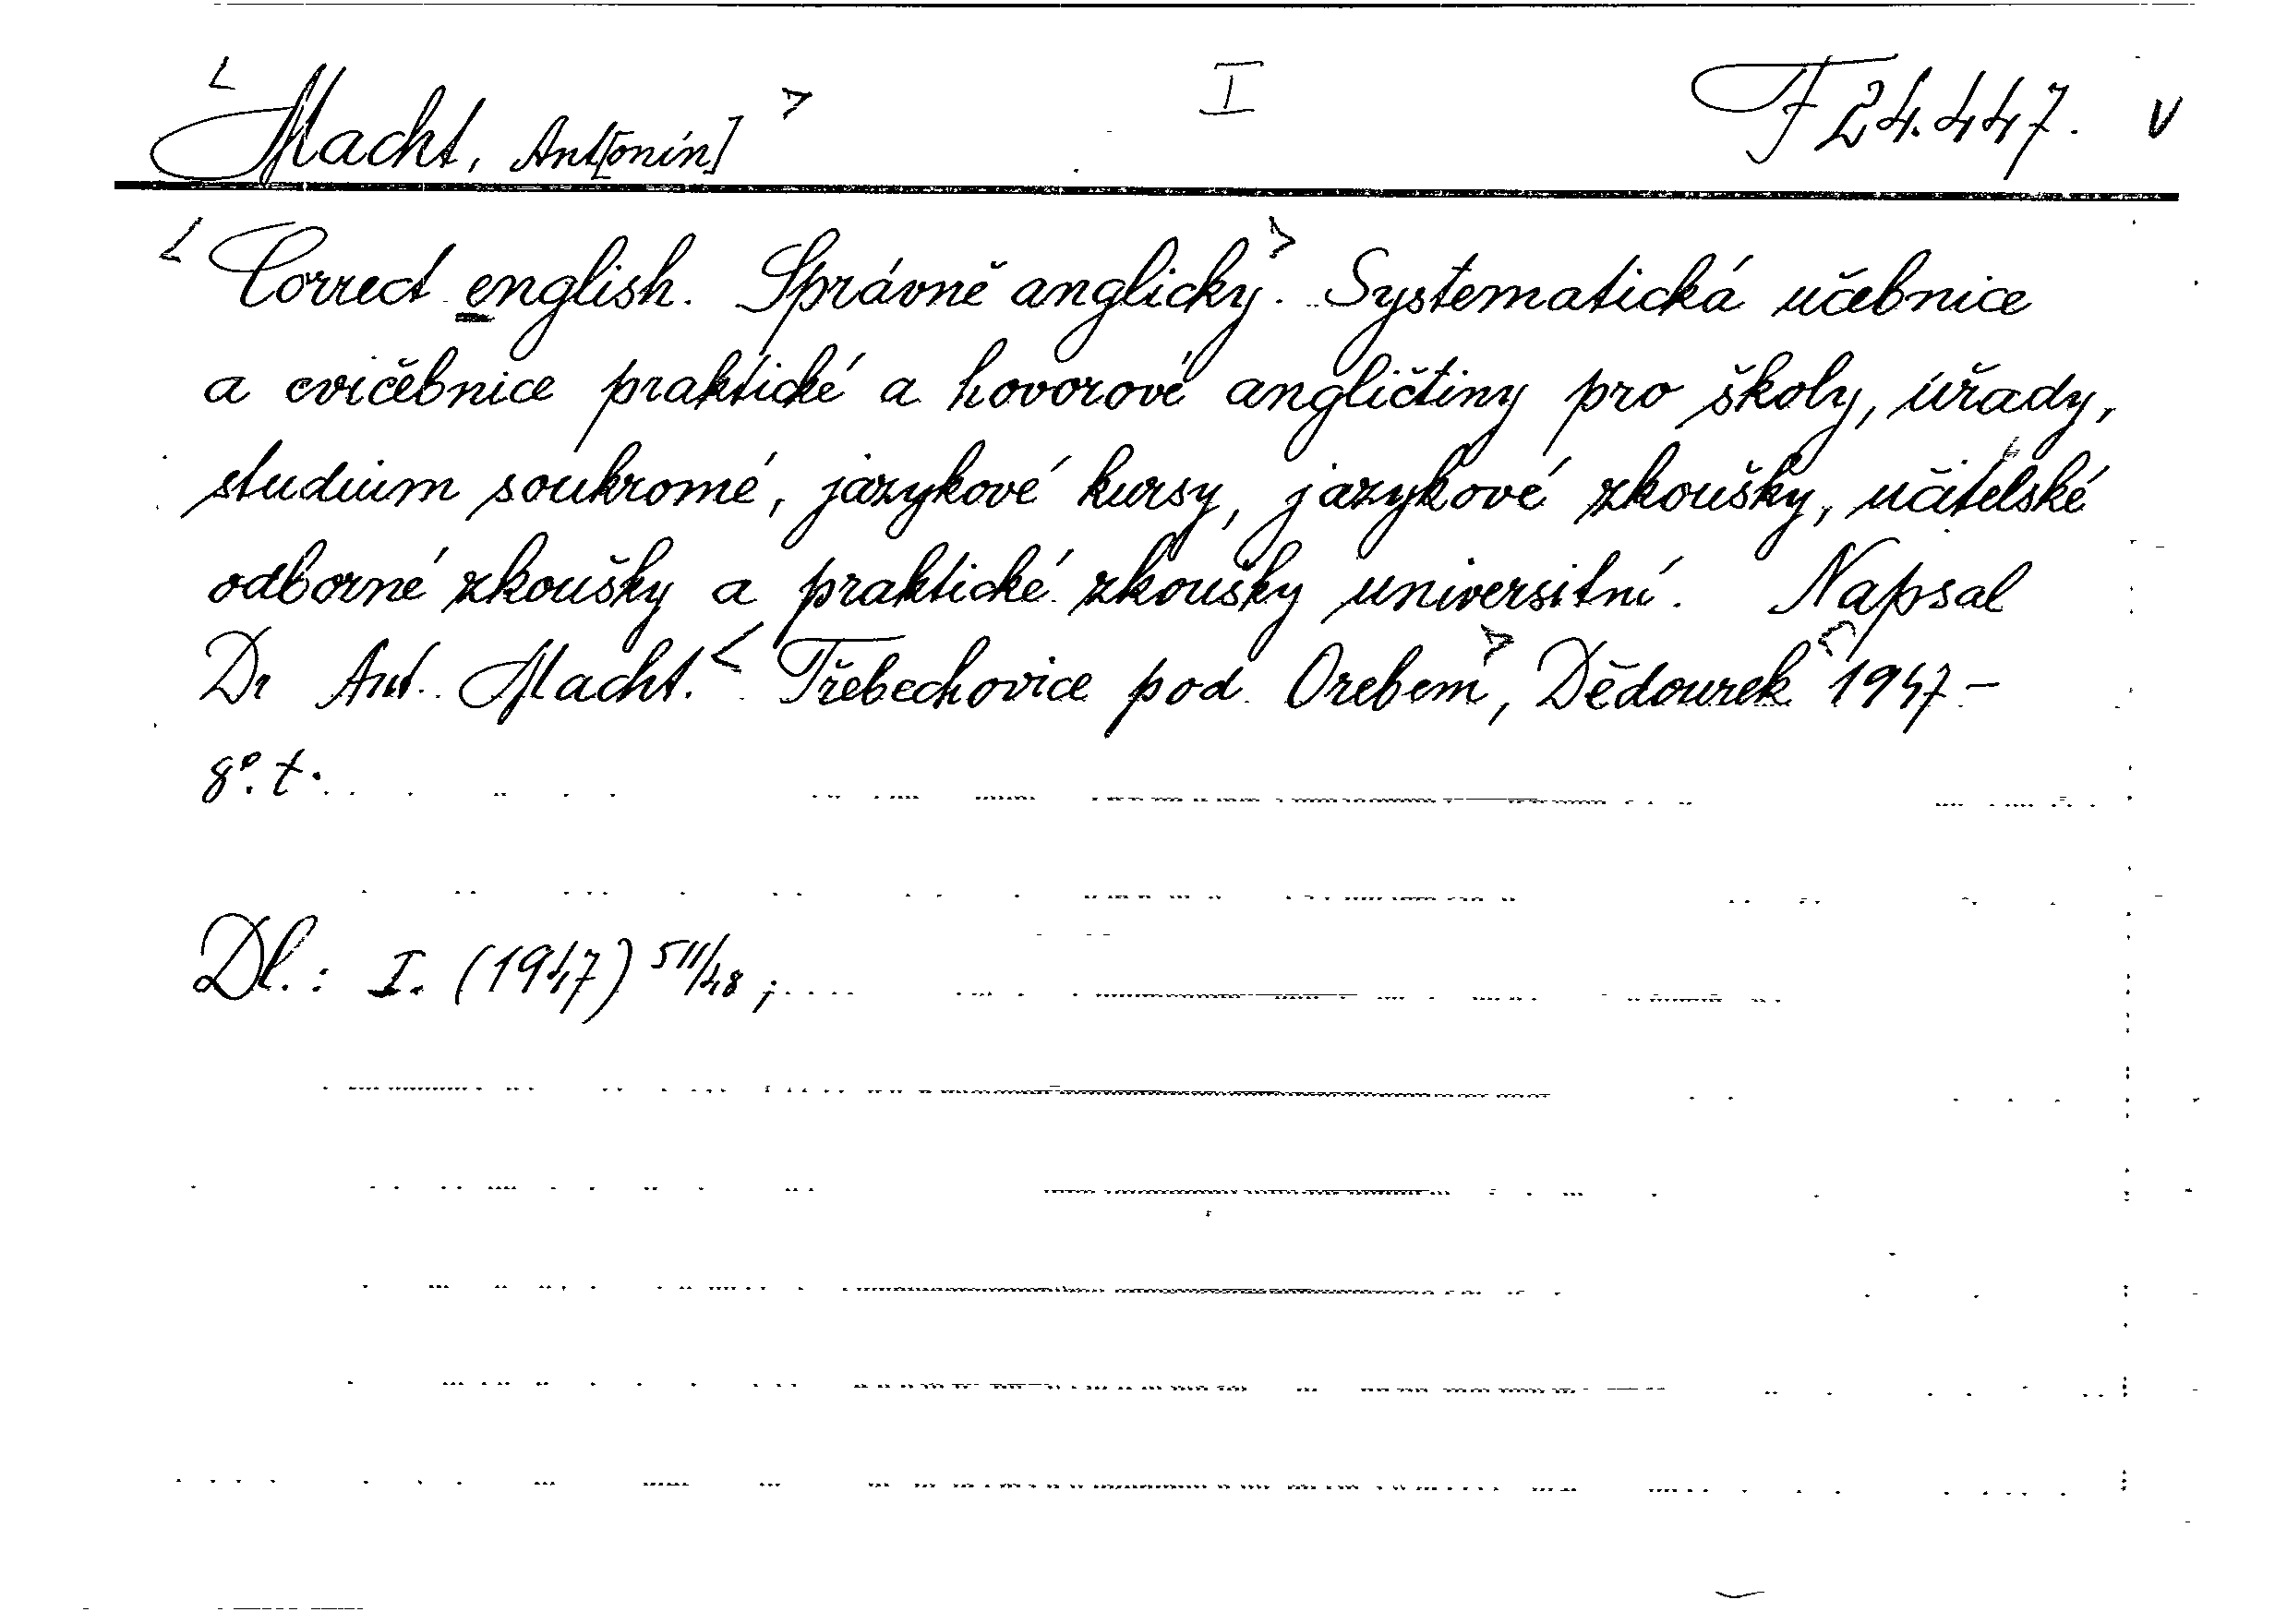 < Macht, Ant[onín] > I F 24.447. v
< Correct english. Správně anglicky >. Systematická učebnice
a cvičebnice praktické a hovorové angličtiny pro školy, úřady,
studium soukromé, jazykové kursy, jazykové zkoušky, učitelské
odborné zkoušky a praktické zkoušky universitní. Napsal
Dr Ant. Macht. < Třebechovice pod Orebem >, Dědourek 1947 –
8°. t.
Dl.: I. (1947) 511/48 ;